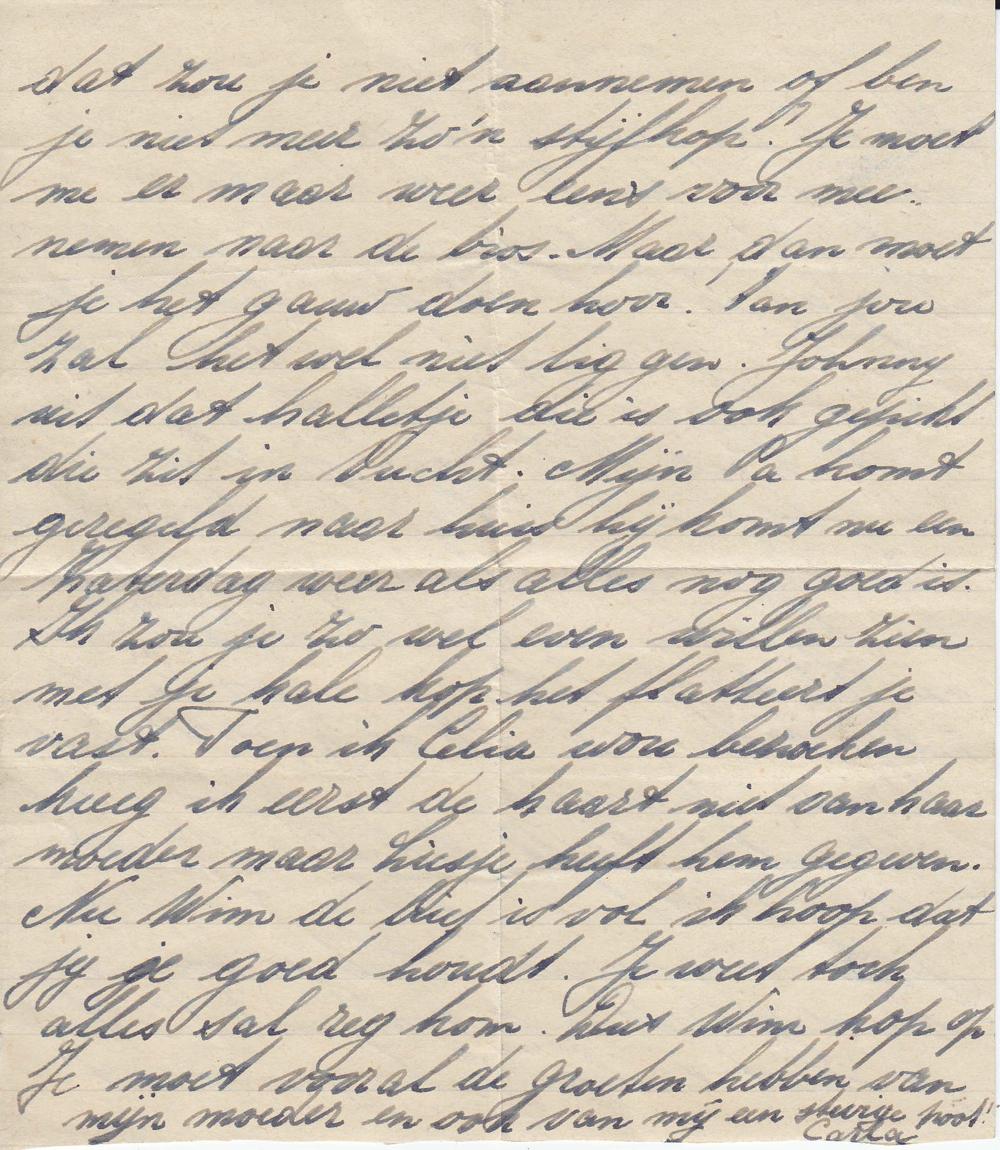 dat zou je niet aannemen of ben
je niet meer zo'n stijfkop? Je moet
me er maar weer eens voor mee-
nemen naar de bios. Maar dan moet
je het gauw doen hoor! Van jou
zal het wel niet liggen. Johnny
uit dat halletje die is ook gepikt
die zit in Vucht. Mijn Pa komt
geregeld naar huis hij komt nu een
Zaterdag weer als alles nog goed is.
Ik zou je zo wel even willen zien
met je kale kop het flatteert je
vast. Toen ik Celia wou bezoeken
kreeg ik eerst de kaart niet van haar
moeder maar Liesje heeft hem gegeven.
Nu Wim de brief is vol ik hoop dat
jij je goed houdt. Je weet toch
alles sal reg kom. Dus Wim kop op
Je moet vooral de groeten hebben van
mijn moeder en ook van mij een stevige poot!
Carla